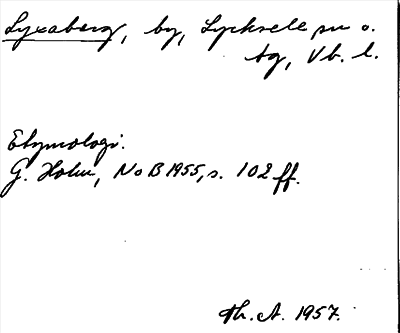 Lyxaberg, by, Lycksele sn o.
tg, Vb. l.
Etymologi.
G. Holm, NoB 1955, s. 102 ff.
Th. A. 1957.